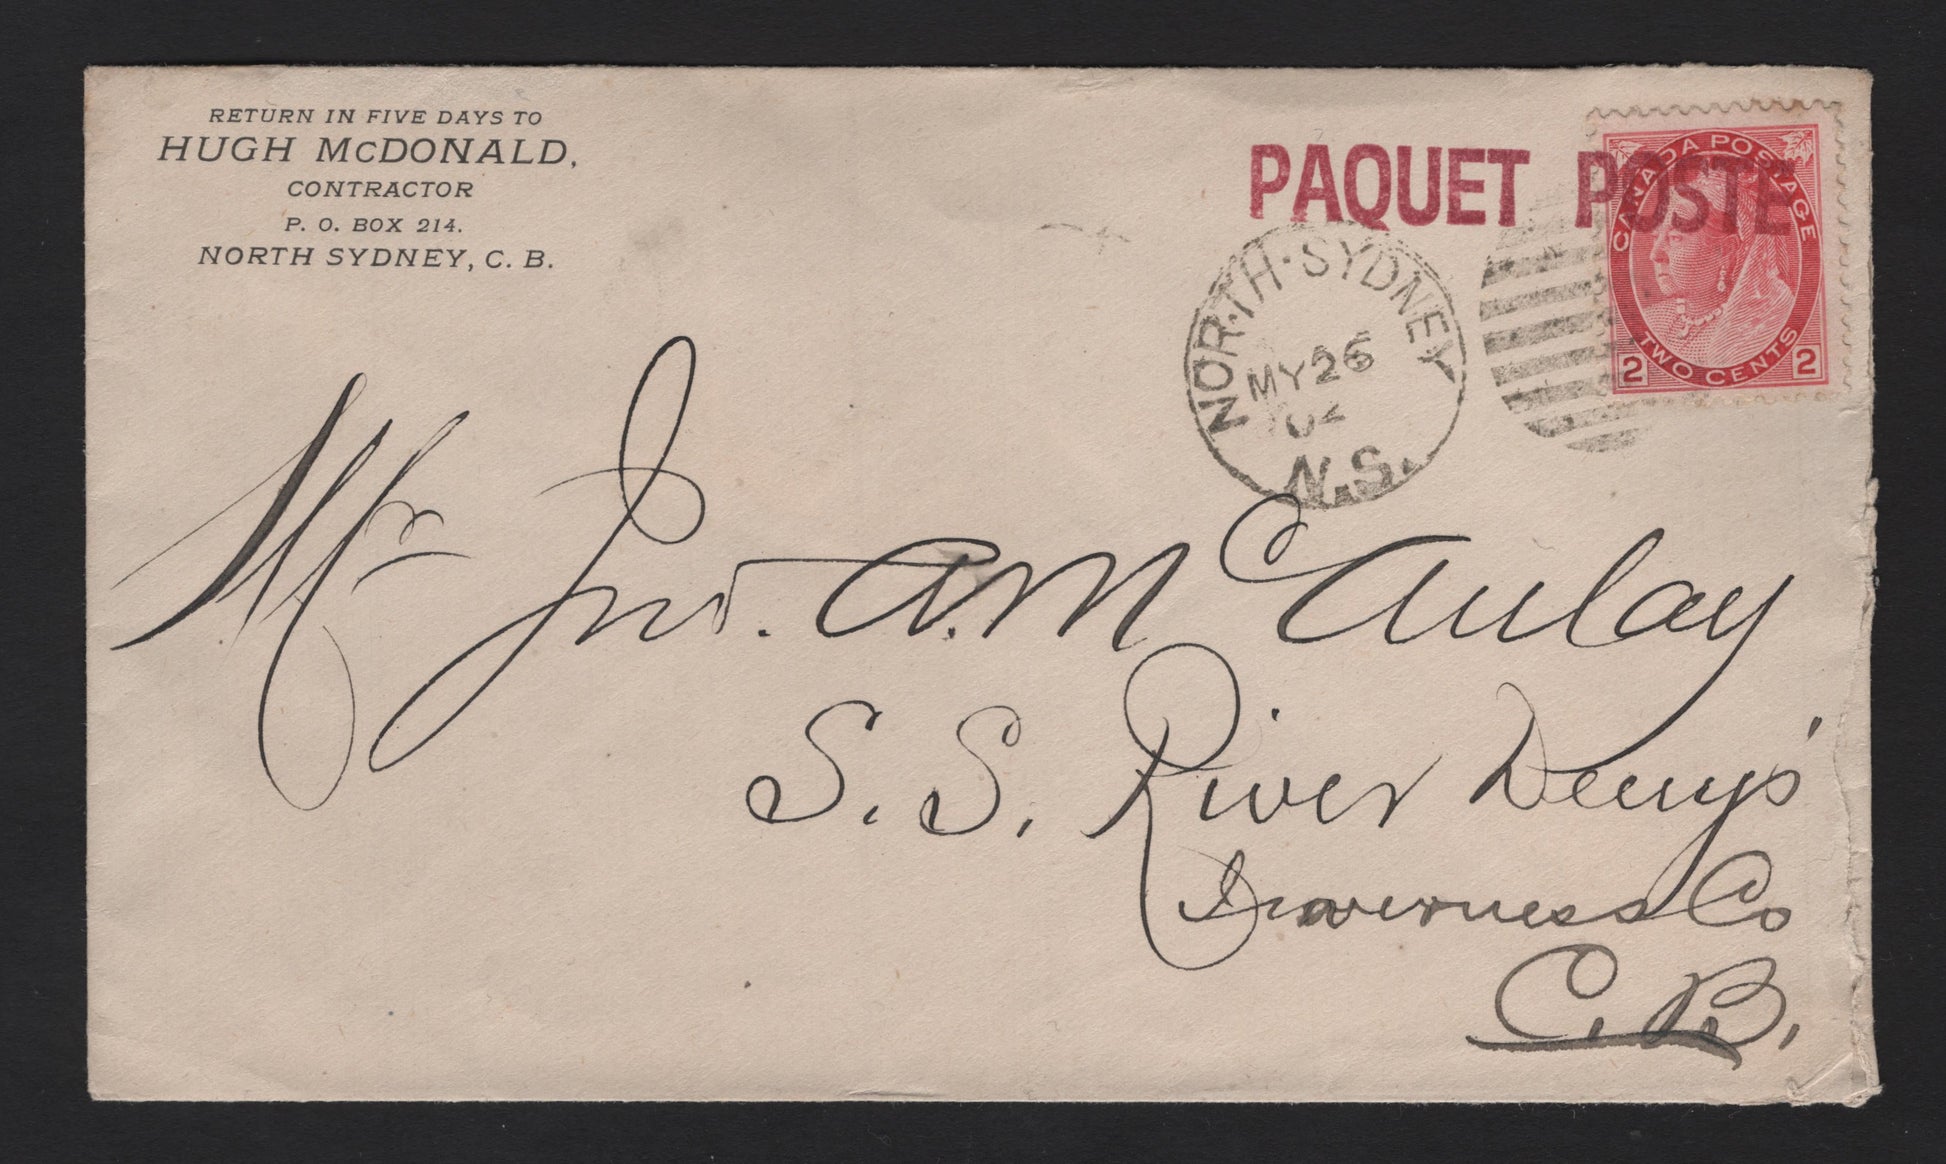 RETURN IN FIVE DAYS TO
HUGH McDONALD,
CONTRACTOR
P. O. BOX 214.
NORTH SYDNEY, C. B.
PAQUET POSTE
CANADA POSTAGE
TWO CENTS
2 2
NORTH·SYDNEY
MY 26
04
N.S.
Mr Jno. A. McAulay
S. S. River Denys'
Inverness Co
C. B.